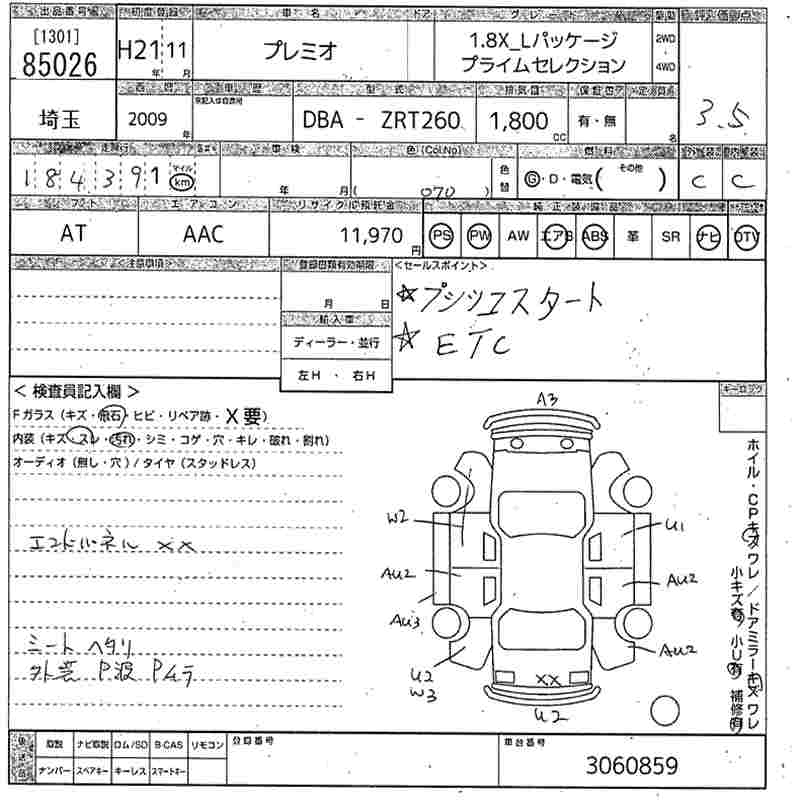 出品番号 初度登録 車名 ドア グレード 駆動 評価点
[1301] 85026 H21 年 11 月 プレミオ 1.8X_Lパッケージ プライムセレクション 2WD 4WD 3.5
西暦 車歴 型式 排気量 保証書 定員
埼玉 2009 年 DBA - ZRT260 1,800 cc 有・無 名
走行 車検 色(Col.No) 燃料 外装 内装
184391 マイル km 年 月 ( 070 ) 色替 G・D・電気( その他 ) C C
シフト エアコン リサイクル預託金 純正装備品
AT AAC 11,970 円 PS PW AW エアB ABS 革 SR ナビ TV
注意事項 登録書類有効期限 <セールスポイント>
月 日
☆プシツエスタート
輸入車
ディーラー・並行
☆ETC
左H ・ 右H
<検査員記入欄> キーロック
Fガラス(キズ・飛石・ヒビ・リペア跡・X要)
内装(キズ・スレ・汚れ・シミ・コゲ・穴・キレ・破れ・割れ)
オーディオ(無し・穴)/タイヤ(スタッドレス)
エンドルネル XX
シート ヘタリ
外装 P波 Pムラ
A3
W2
U1
AU2
AU2
AU3
AU2
U2
W3
XX
U2
ホイル・CPキズワレ/ドアミラーキズワレ
小キズ有 小U有 補修有
後送品 取説 ナビ取説 ロム/SD B-CAS リモコン 登録番号 車台番号
ナンバー スペアキー キーレス スマートキー 3060859